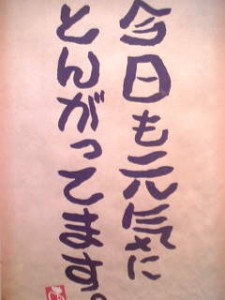 今日も元気に
とんがってます。